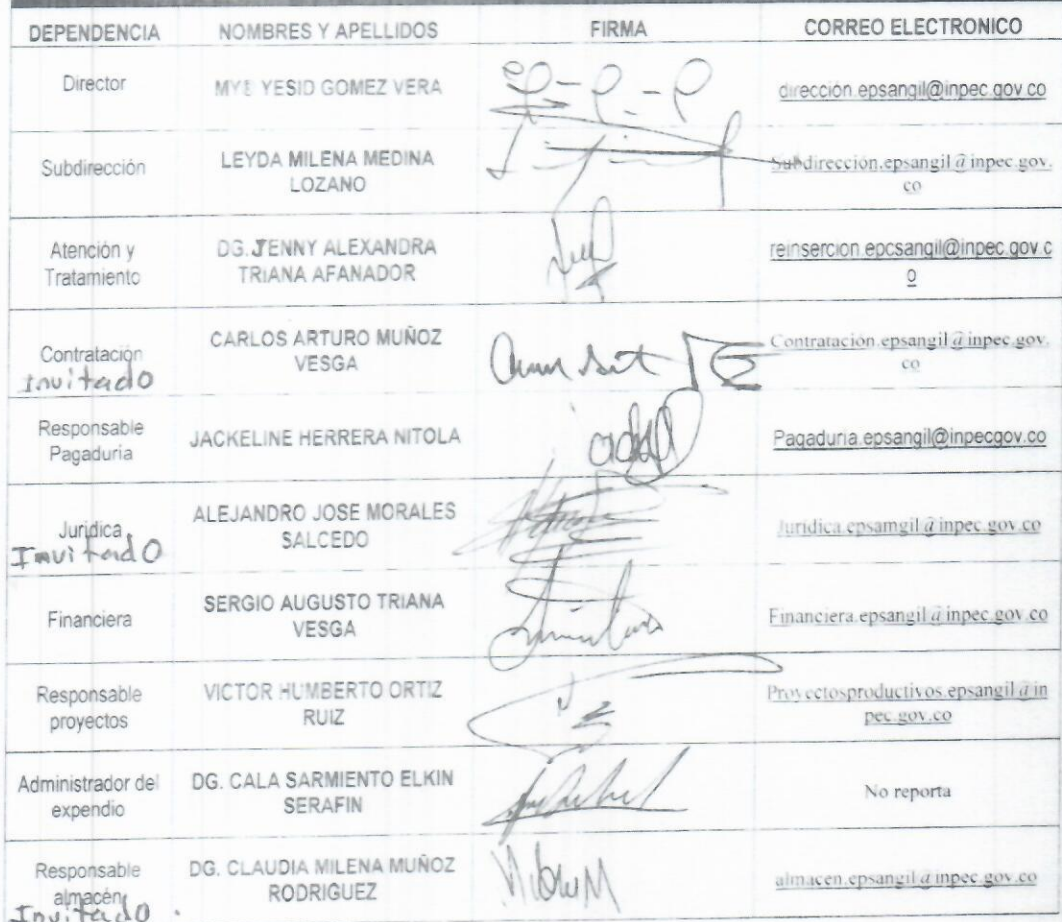 DEPENDENCIA NOMBRES Y APELLIDOS FIRMA CORREO ELECTRONICO
Director MYE YESID GOMEZ VERA dirección.epsangil@inpec.gov.co
Subdirección LEYDA MILENA MEDINA
LOZANO
Subdirección.epsangil@inpec.gov.
co
Atención y
Tratamiento
DG. JENNY ALEXANDRA
TRIANA AFANADOR
reinsercion.epcsangil@inpec.gov.c
o
Contratación
Invitado
CARLOS ARTURO MUÑOZ
VESGA
Contratación.epsangil@inpec.gov.
co
Responsable
Pagaduria
JACKELINE HERRERA NITOLA
Pagaduria.epsangil@inpecgov.co
Juridica
Invitado
ALEJANDRO JOSE MORALES
SALCEDO
Juridica.epsamgil@inpec.gov.co
Financiera
SERGIO AUGUSTO TRIANA
VESGA
Financiera.epsangil@inpec.gov.co
Responsable
proyectos
VICTOR HUMBERTO ORTIZ
RUIZ
Proyectosproductivos.epsangil@in
pec.gov.co
Administrador del
expendio
DG. CALA SARMIENTO ELKIN
SERAFIN
No reporta
Responsable
almacén
Invitado
DG. CLAUDIA MILENA MUÑOZ
RODRIGUEZ
almacen.epsangil@inpec.gov.co